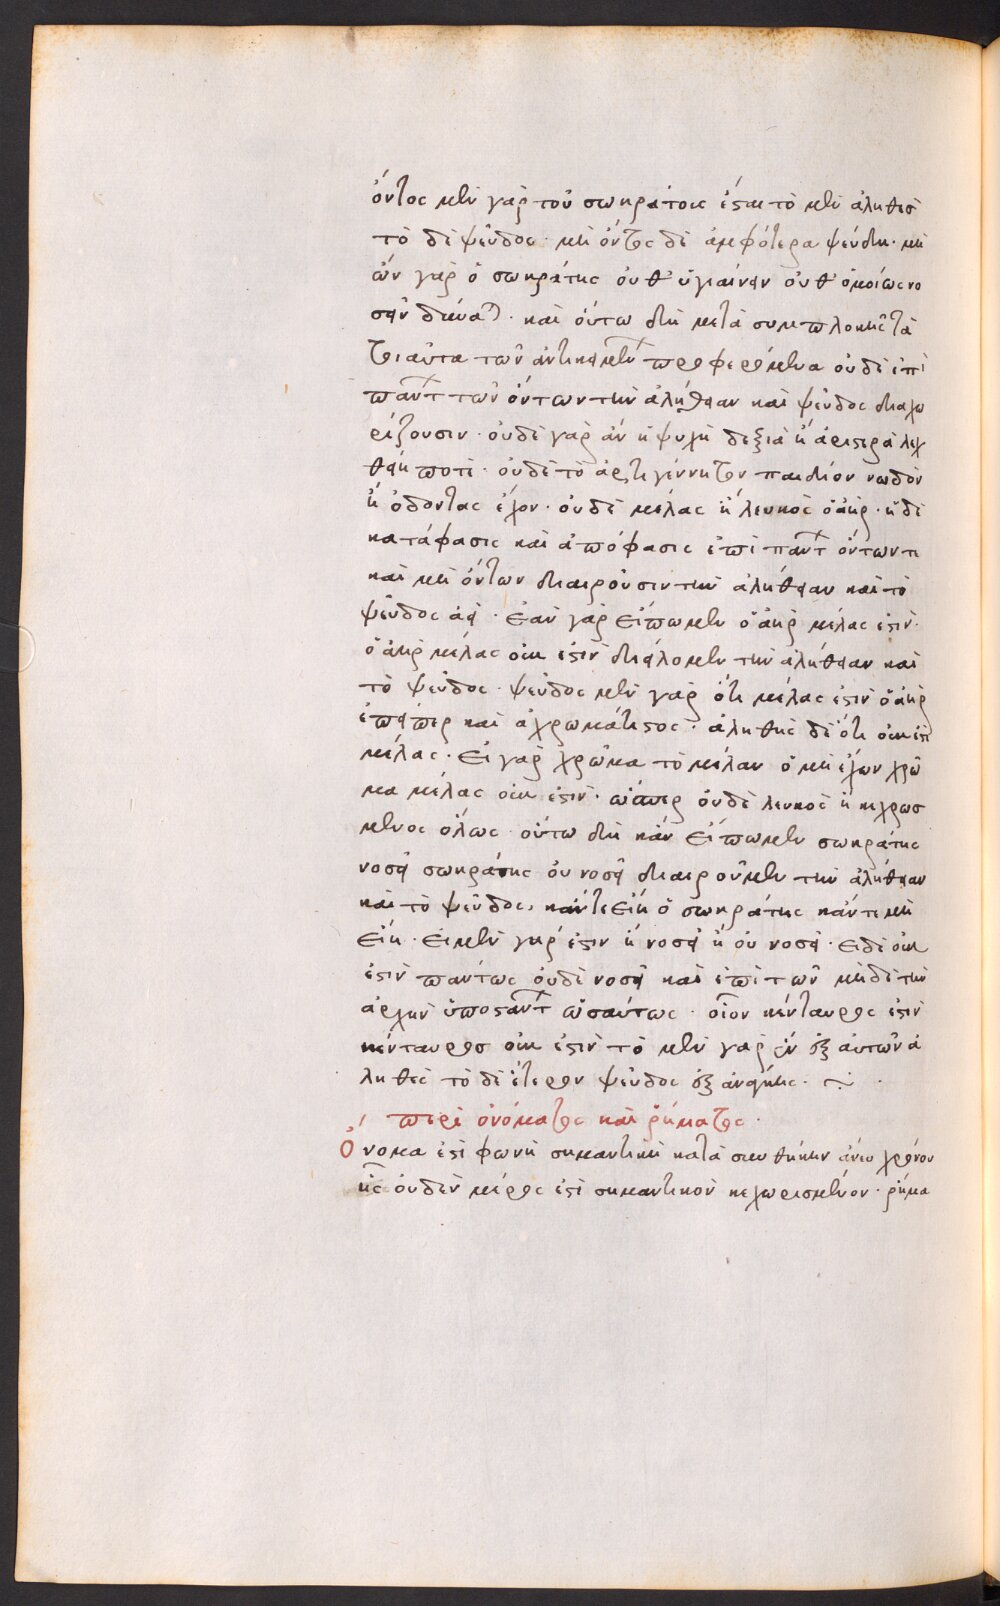 ὄντος μὲν γὰρ τοῦ σωκράτους ἔσται τὸ μὲν ἀληθὲσ
τὸ δὲ ψεῦδος· μὴ ὄντος δὲ ἀμφότερα ψεύδη· μὴ
ὢν γὰρ ὁ σωκράτης οὔθ' ὑγιαίνειν οὔθ' ὁμοίως νο
σεῖν δύναται· καὶ οὕτω δὴ μετὰ συμπλοκῆς τὰ
τοιαῦτα τῶν ἀντικειμένων προφερόμενα οὐδὲ ἐπὶ
πάντων τῶν ὄντων τὴν ἀλήθειαν καὶ ψεῦδος διαχω
ρίζουσιν· οὐδὲ γὰρ ἂν ἡ ψυχὴ δεξιὰ ἢ ἀριστερὰ λεχ
θείη ποτὲ· οὐδὲ τὸ ἀρτιγέννητον παιδίον νωδὸν
ἢ ὀδόντας ἔχον· οὐδὲ μέλας ἢ λευκὸς ὁ ἀὴρ· ἡ δὲ
κατάφασις καὶ ἀπόφασις ἐπὶ πάντων ὄντων τε
καὶ μὴ ὄντων διαιροῦσιν τὴν ἀλήθειαν καὶ τὸ
ψεῦδος ἀεὶ· ἐὰν γὰρ εἴπωμεν ὁ ἀὴρ μέλας ἐστὶν·
ὁ ἀὴρ μέλας οὐκ ἐστὶν διείλομεν τὴν ἀλήθειαν καὶ
τὸ ψεῦδος· ψεῦδος μὲν γὰρ ὅτι μέλας ἐστὶν ὁ ἀὴρ
ἐπείπερ καὶ ἀχρωμάτιστος· ἀληθὴς δὲ ὅτι οὐκ ἔστι
μέλας· εἰ γὰρ χρῶμα τὸ μέλαν ὁ μὴ ἔχων χρῶ
μα μέλας οὐκ ἐστὶν· ὥσπερ οὐδὲ λευκὸς ἢ κεχρωσ
μένος ὅλως· οὕτω δὴ κἂν εἴπωμεν σωκράτης
νοσεῖ σωκράτης οὐ νοσεῖ διαιροῦμεν τὴν ἀλήθειαν
καὶ τὸ ψεῦδος, κἄν τε εἴη ὁ σωκράτης κἄν τε μὴ
εἴη· εἰ μὲν γὰρ ἐστιν ἢ νοσεῖ ἢ οὐ νοσεῖ· εἰ δὲ οὐκ
ἐστὶν παντως οὐδὲ νοσεῖ καὶ ἐπὶ τῶν μὴ δὲ τὴν
ἀρχὴν ὑποστάντων ὡσαύτως· οἷον κένταυρος ἐστὶν
κένταυροσ οὐκ ἐστὶν τὸ μὲν γὰρ ἓν ἐξ αὐτῶν ἀ
ληθὲς τὸ δὲ ἕτερον ψεῦδος ἐξ ἀνάγκης·
περὶ ὀνόματος καὶ ῥήματος·
Ὄνομα ἐστὶ φωνὴ σημαντικὴ κατὰ συνθήκην ἄνευ χρόνου
ἧς οὐδὲν μέρος ἐστὶ σημαντικὸν κεχωρισμένον· ῥῆμα